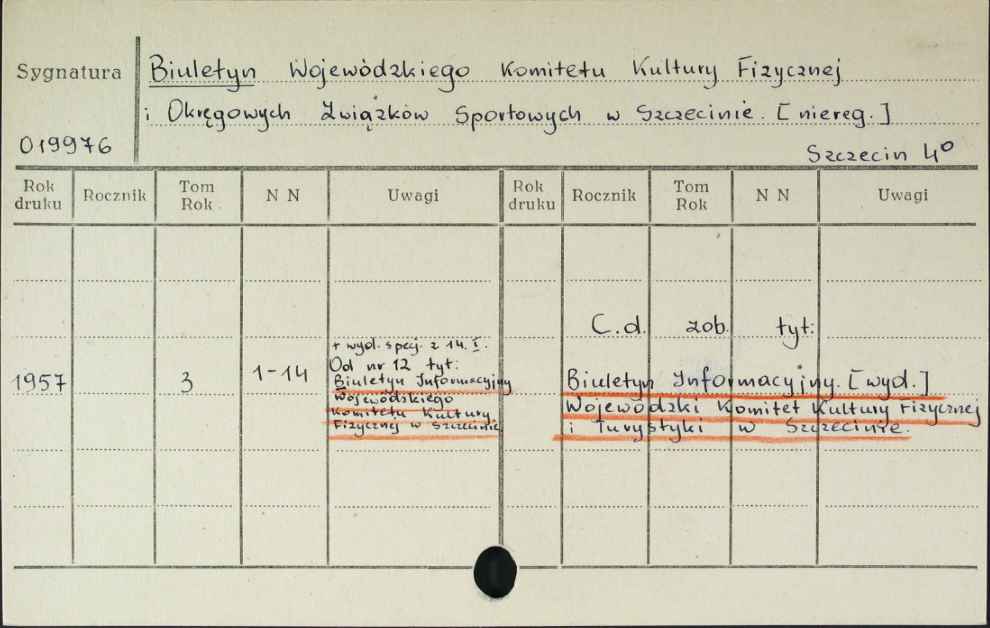 Sygnatura
Biuletyn Wojewódzkiego Komitetu Kultury Fizycznej
i Okręgowych Związków Sportowych w Szczecinie. [niereg.]
019976
Szczecin 4°
Rok druku Rocznik Tom Rok N N Uwagi Rok druku Rocznik Tom Rok N N Uwagi
C.d. zob. tyt:
+ wyd. specj. z 14. I.
Od nr 12 tyt:
1957 3 1-14 Biuletyn Informacyjny
Wojewódzkiego
Komitetu Kultury
Fizycznej w Szczecinie
Biuletyn Informacyjny. [wyd.]
Wojewódzki Komitet Kultury Fizycznej
i Turystyki w Szczecinie.